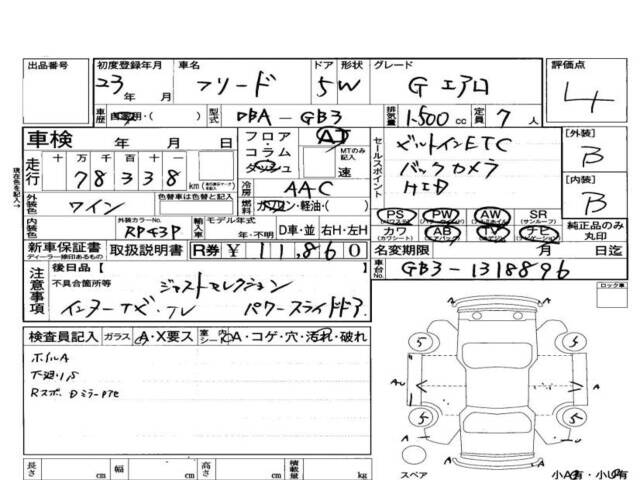 出品番号
初度登録年月 23年 月
車名 フリード
ドア 5 形状 W
グレード G エアロ
評価点 4
車歴 自家用・( )
型式 DBA-GB3
排気量 1500 cc
定員 7 人
車検 年 月 日
フロア・コラム・ダッシュ AT
MTのみ記入 速
走行 十 万 千 百 十 一
78338 km
冷房 AAC
現在色を記入→
外装色 ワイン
色替車は色替と記入
燃料 ガソリン・軽油・( )
内装色
外装カラーNo. RP43P
輸入車 モデル年式 年・不明 D車・並 右H・左H
新車保証書 ディーラー捺印あるもの
取扱説明書
R券 ¥11,860
セールスポイント
ビルトインETC
バックカメラ
HID
[外装] B
[内装] B
PS (パワステ) PW (パワーウィンドウ) AW (アルミホイル) SR (サンルーフ)
カワ (カワシート) AB (エアバック) TV ナビ (ナビゲーション)
純正品のみ丸印
名変期限 月 日迄
車台No. GB3-1318896
注意事項
後日品 [
不具合箇所等
ジャストセレクション
インターナビ・TV パワースライドドア
ロック車
検査員記入 ガラス A・X要ス
室内シート A・コゲ・穴・汚れ・破れ
ホイルA
下廻りS
5 5
A A
5 5
A A
スペア
小A有・小U有
長さ cm 幅 cm 高さ cm 積載量 kg